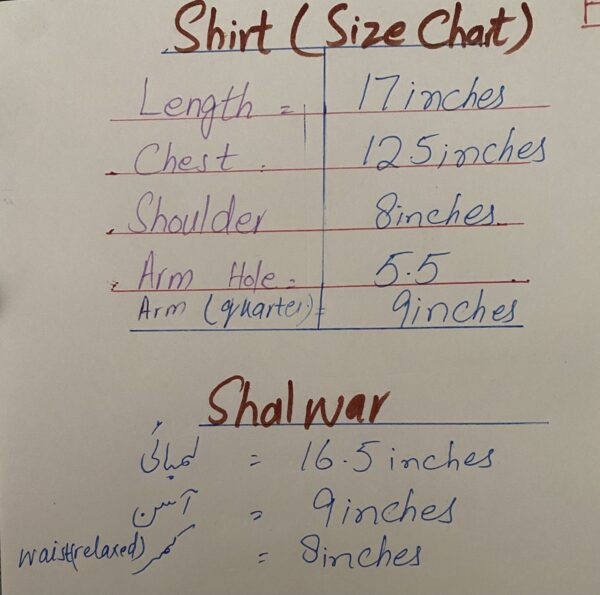 Shirt (Size Chart)
Length = 17 inches
Chest . 125 inches
Shoulder 8 inches
Arm Hole = 5.5
Arm (quarter) = 9 inches
Shalwar
لمبائی = 16.5 inches
آسن = 9 inches
waist (relaxed) کمر = 8 inches